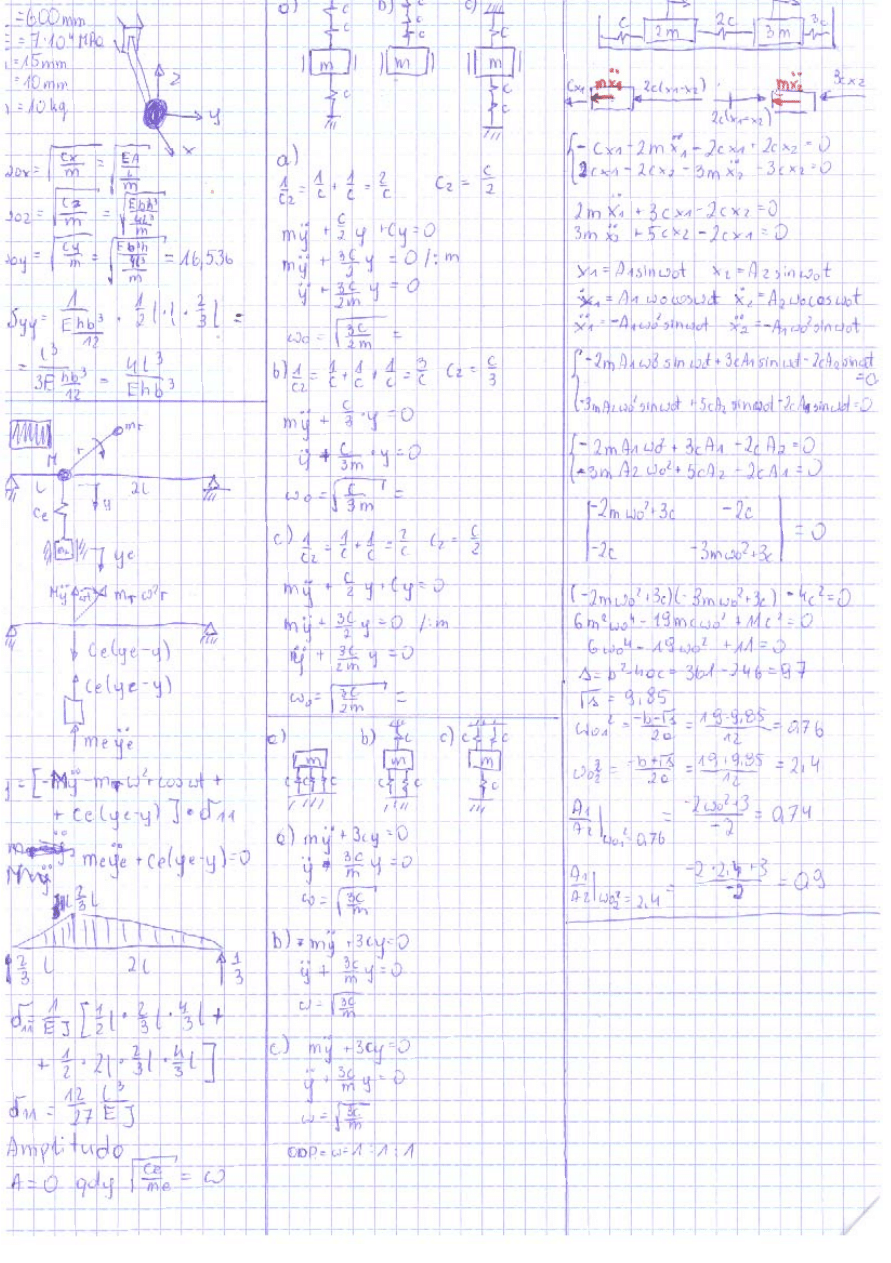 =600mm
= 7·10⁴ MPa
=15mm
=10mm
=10kg
z
y
x
20x = √(cx/m) = √((EA/L)/m)
20z = √(cz/m) = √((Ebh³/4l³)/m)
20y = √(cy/m) = √((Eb³h/4l³)/m) = 16,536
δyy = 1/(Ehb³/12) · 1/2 l · l · 2/3 l =
= l³/(3E hb³/12) = 4l³/(Ehb³)
M
r
mr
l
2l
y
ce
me
yc
Mÿ
ωt
mrω²r
Ce(ye-y)
Ce(ye-y)
meÿe
y = [-Mÿ-mrω²r cosωt +
+ Ce(ye-y)]·δ11
meÿe + Ce(ye-y)=0
2/3 l
2/3
l
2l
1/3
δ11 = 1/EJ [1/2 l · 2/3 l · 4/9 l +
+ 1/2 · 2l · 2/3 l · 4/3 l]
δ11 = 12/27 l³/EJ
Amplitudo
A=0 gdy √(ce/me) = ω
a)
b)
c)
c
c
m
c
c
c
c
c
m
c
m
c
c
a)
1/c2 = 1/c + 1/c = 2/c c2 = c/2
mÿ + c/2 y + cy = 0
mÿ + 3c/2 y = 0 /:m
ÿ + 3c/2m y = 0
ω0 = √(3c/2m) =
b) 1/c2 = 1/c + 1/c + 1/c = 3/c c2 = c/3
mÿ + c/3 · y = 0
ÿ + c/3m · y = 0
ω0 = √(c/3m) =
c) 1/c2 = 1/c + 1/c = 2/c c2 = c/2
mÿ + c/2 y + cy = 0
mÿ + 3c/2 y = 0 /:m
ÿ + 3c/2m y = 0
ω0 = √(3c/2m) =
a)
b)
c)
m
c
c
c
c
m
c
c
c
c
m
c
a) mÿ + 3cy = 0
ÿ + 3c/m y = 0
ω = √(3c/m)
b) mÿ + 3cy = 0
ÿ + 3c/m y = 0
ω = √(3c/m)
c) mÿ + 3cy = 0
ÿ + 3c/m y = 0
ω = √(3c/m)
ODP = ω=1:1:1
c
2m
2c
3m
3c
cx1
mẍ1
2c(x1-x2)
2c(x1-x2)
mẍ2
3cx2
-cx1-2mẍ1-2cx1+2cx2=0
2cx1-2cx2-3mẍ2-3cx2=0
2mẍ1+3cx1-2cx2=0
3mẍ2+5cx2-2cx1=0
x1=A1sinω0t x2=A2sinω0t
ẋ1=A1ω0cosω0t ẋ2=A2ω0cosω0t
ẍ1=-A1ω0²sinω0t ẍ2=-A1ω0²sinω0t
-2mA1ω0²sinω0t+3cA1sinω0t-2cA2sinω0t
=0
-3mA2ω0²sinω0t+5cA2sinω0t-2cA1sinω0t=0
-2mA1ω0²+3cA1-2cA2=0
-3mA2ω0²+5cA2-2cA1=0
-2mω0²+3c -2c
= 0
-2c -3mω0²+3c
(-2mω0²+3c)(-3mω0²+3c)-4c²=0
6m²ω0⁴-19mcω0²+11c²=0
6ω0⁴-19ω0²+11=0
Δ=b²-4ac=361-246=97
√Δ=9,85
ω01²=(-b-√Δ)/2a=(19-9,85)/12=0,76
ω02²=(-b+√Δ)/2a=(19+9,85)/12=2,4
A1/A2|ω01²=0,76 = (-2ω0²+3)/-2 = 0,74
A1/A2|ω02²=2,4 = (-2·2,4+3)/-2 = 0,9